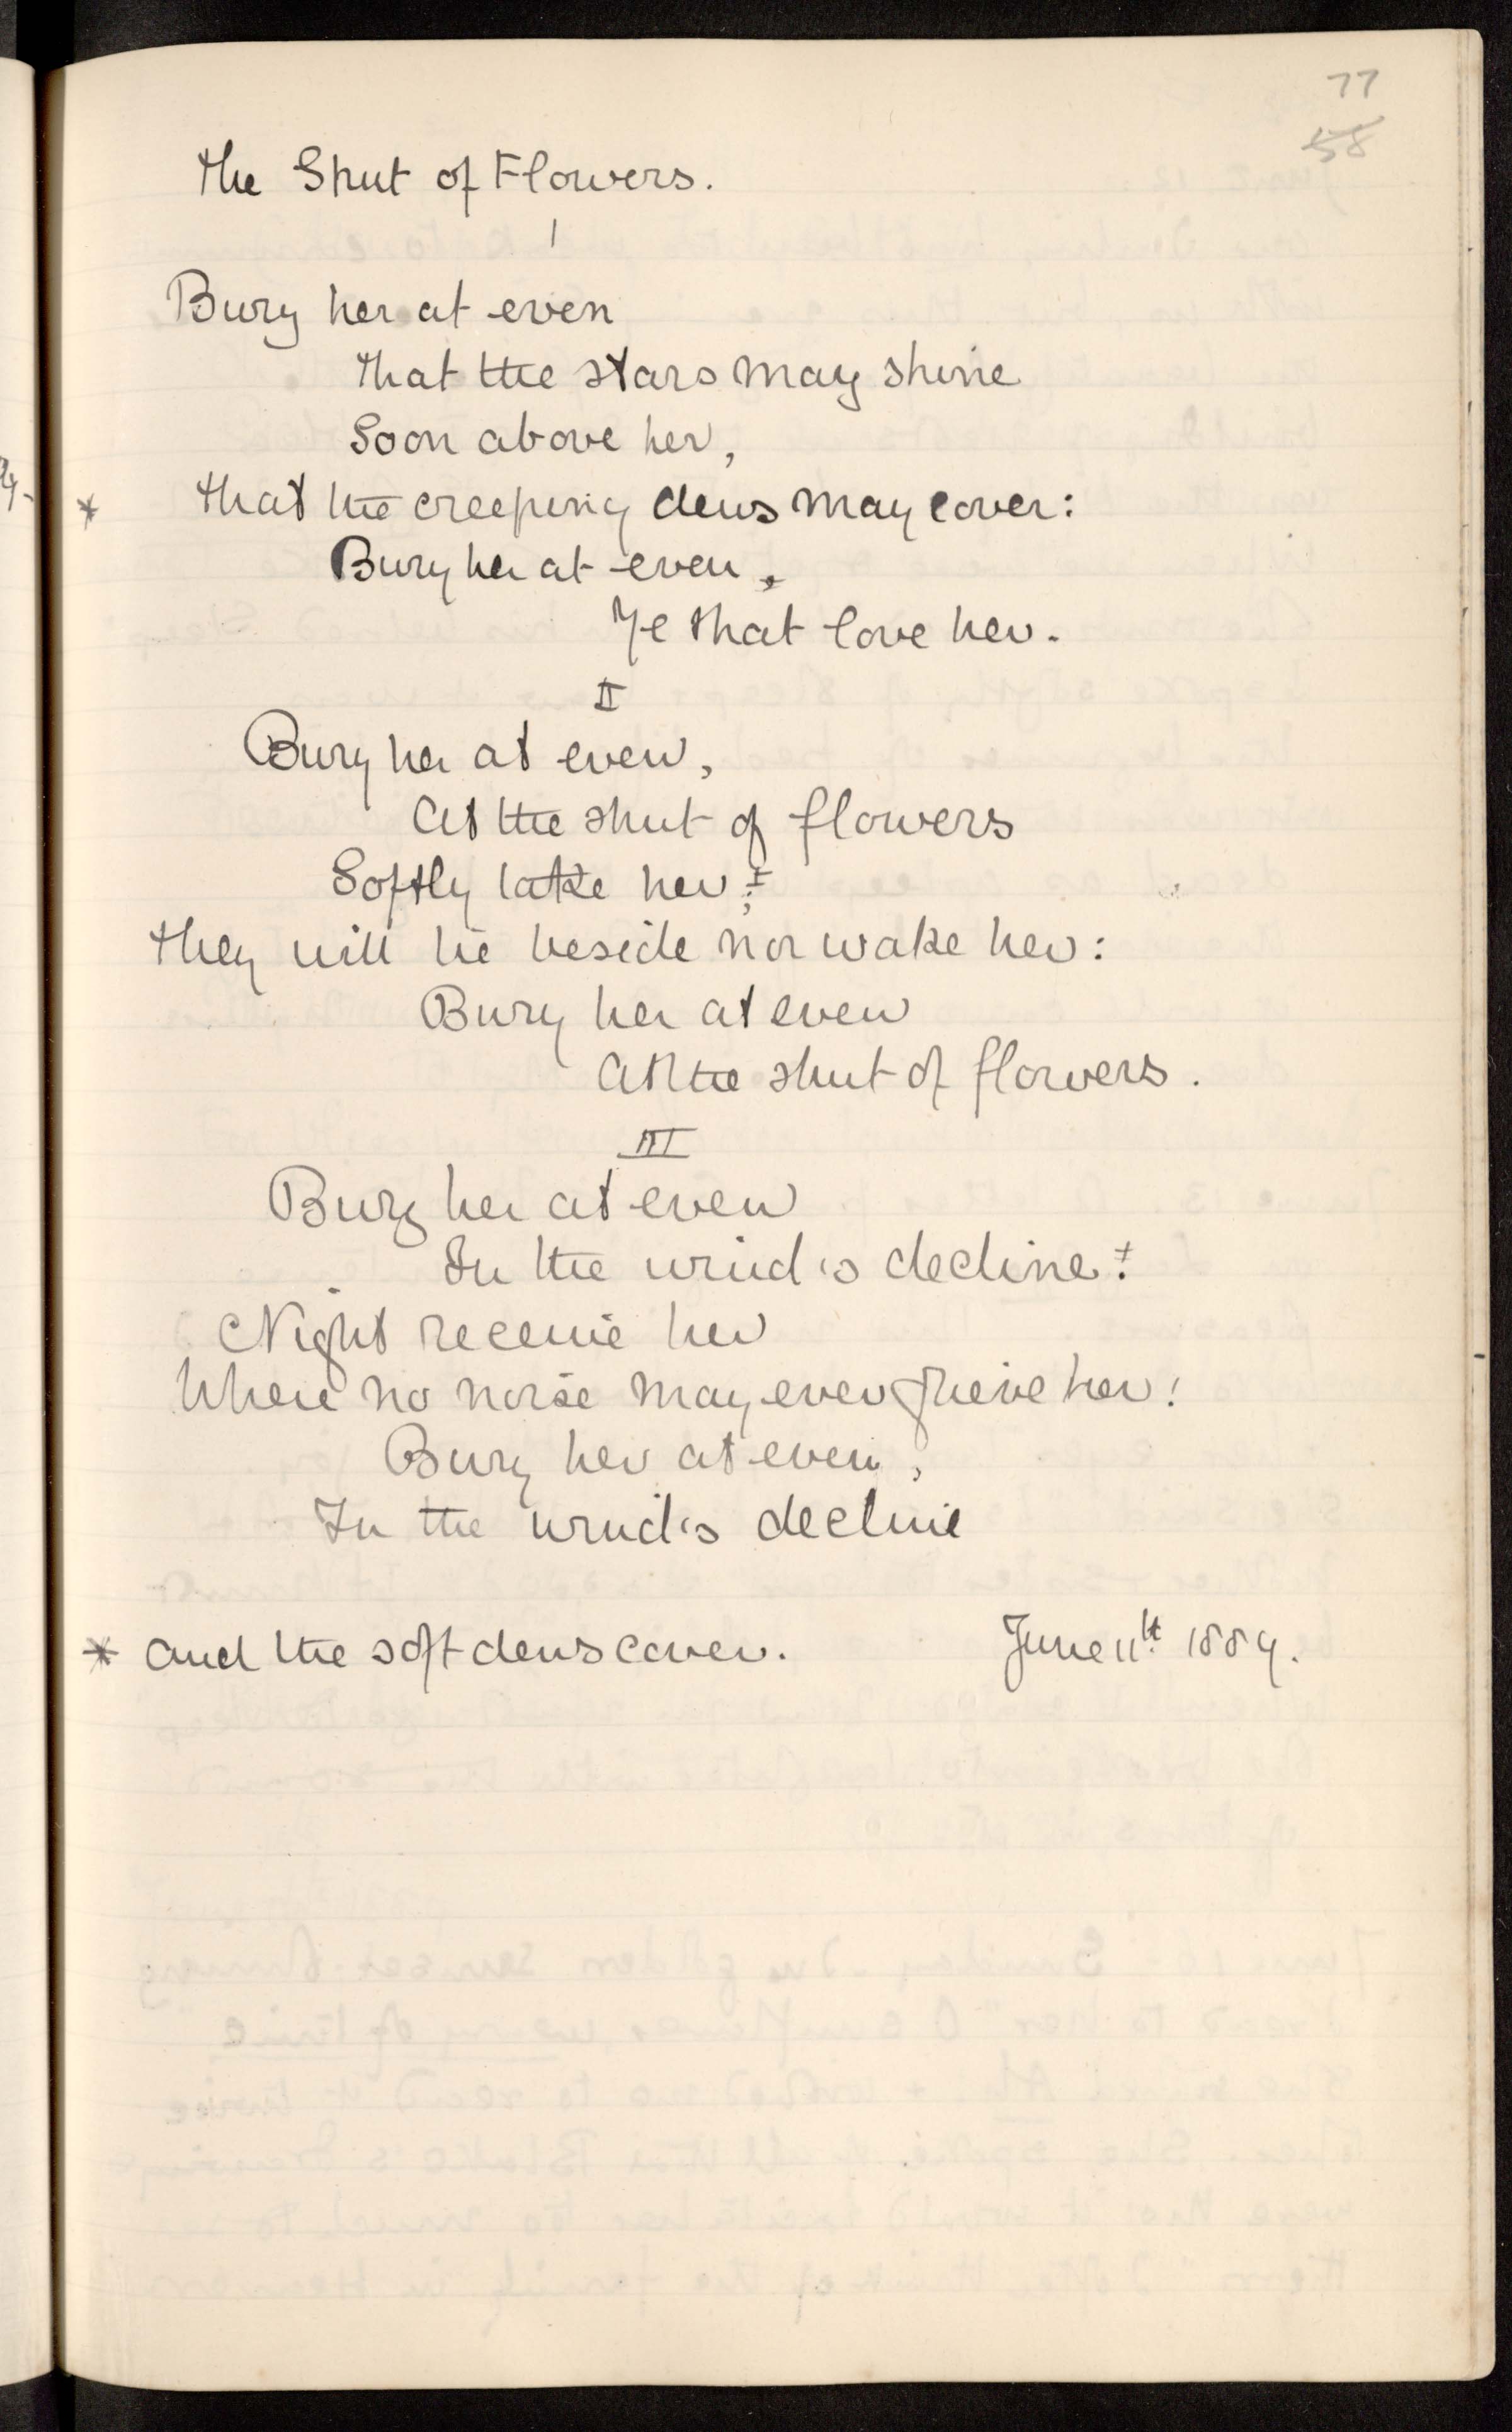 77
58
The Shut of Flowers.
I
Bury her at even
That the stars may shine
Soon above her,
* That the creeping dews may cover:
Bury her at even,
Ye that love her.
II
Bury her at even,
At the shut of flowers
Softly take her;
They will lie beside nor wake her:
Bury her at even
At the shut of flowers.
III
Bury her at even
In the wind's decline:
Night receive her
Where no noise may ever grieve her!
Bury her at even,
In the wind's decline
* And the soft dews cover.
June 11th 1889.